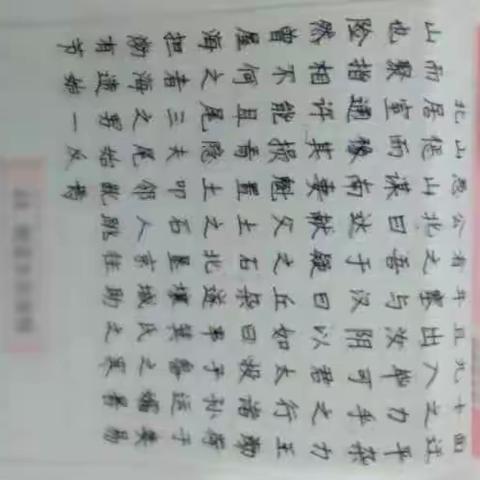 北山愚公有年且九十面
山而居惩山北之塞出入之迂
也聚室而谋曰吾与汝毕力平
险指通豫南达于汉阴可乎杂
然相许其妻献疑曰以君之力
曾不能损魁父之丘如太行王
屋何且焉置土石杂曰投诸渤
海之尾隐土之北遂率子孙荷
担者三夫叩石垦壤箕畚运于
渤海之尾邻人京城氏之孀妻
有遗男始龀跳往助之寒暑易
节始一反焉